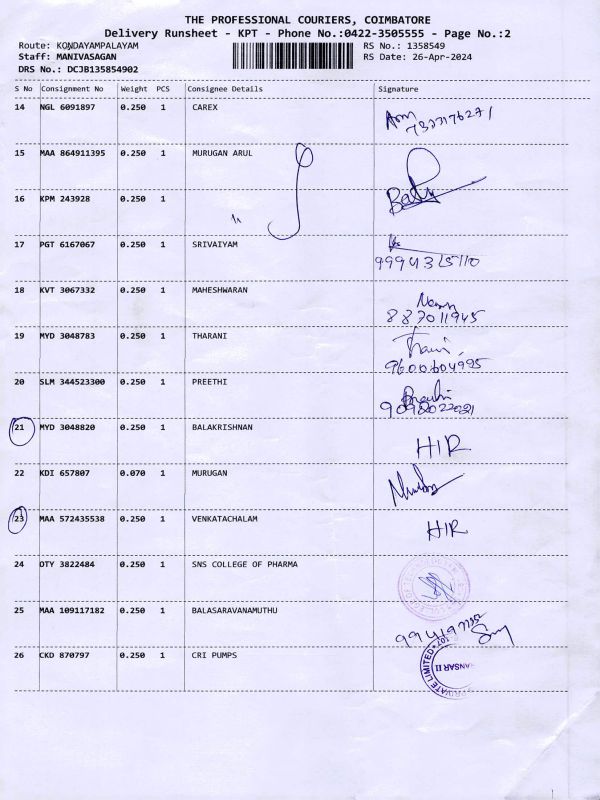 THE PROFESSIONAL COURIERS, COIMBATORE
Delivery Runsheet - KPT - Phone No.:0422-3505555 - Page No.:2
Route: KONDAYAMPALAYAM RS No.: 1358549
Staff: MANIVASAGAN RS Date: 26-Apr-2024
DRS No.: DCJB135854902
S No Consignment No Weight PCS Consignee Details Signature
14 NGL 6091897 0.250 1 CAREX
15 MAA 864911395 0.250 1 MURUGAN ARUL
16 KPM 243928 0.250 1
17 PGT 6167067 0.250 1 SRIVAIYAM
18 KVT 3067332 0.250 1 MAHESHWARAN
887011945
19 MYD 3048783 0.250 1 THARANI
9600604995
20 SLM 344523300 0.250 1 PREETHI
21 MYD 3048820 0.250 1 BALAKRISHNAN
HIR
22 KDI 657807 0.070 1 MURUGAN
23 MAA 572435538 0.250 1 VENKATACHALAM
HIR
24 OTY 3822484 0.250 1 SNS COLLEGE OF PHARMA
25 MAA 109117182 0.250 1 BALASARAVANAMUTHU
26 CKD 870797 0.250 1 CRI PUMPS
PRIVATE LIMITED